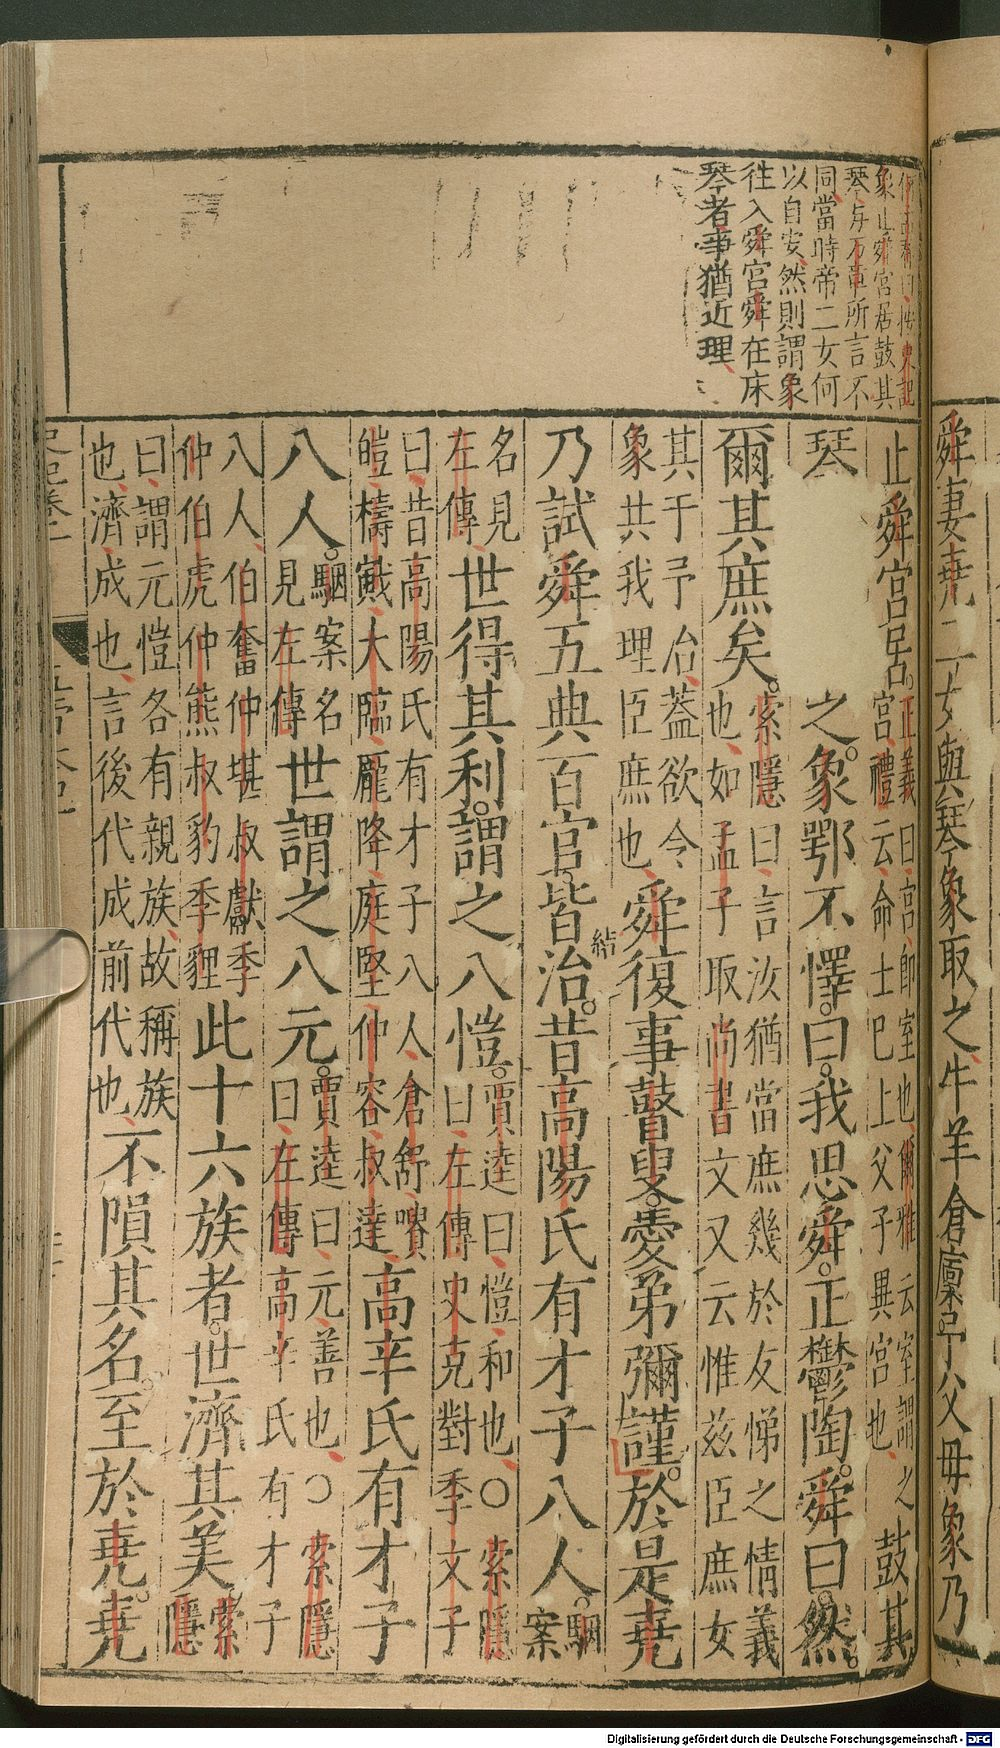 象止舜宮居鼓其
琴與万章所言不
同當時帝二女何
以自安然則謂象
往入舜宮舜在床
琴者事猶近理
舜妻堯二女與琴象取之牛羊倉廩予父母象乃
止舜宮居
正義曰宮即室也爾雅云室謂之
宮禮云命士已上父子異宮也
鼓其
琴
之象鄂不懌曰我思舜正鬱陶舜曰然
爾其庶矣
索隱曰言汝猶當庶幾於友悌之情義
也如孟子取尚書文又云惟茲臣庶女
其于予治蓋欲令
象共我理臣庶也
舜復事瞽叟愛弟彌謹於是堯
乃試舜五典百官皆治昔高陽氏有才子八人
駰
案
結
名見
左傳
世得其利謂之八愷
賈逵曰愷和也○索隱
曰左傳史克對季文子
曰昔高陽氏有才子八人倉舒隤
皚檮戭大臨龐降庭堅仲容叔達
高辛氏有才子
八人
駰案名
見左傳
世謂之八元
賈逵曰元善也○索隱
曰左傳高辛氏有才子
八人伯奮仲堪叔獻季
仲伯虎仲熊叔豹季貍
此十六族者世濟其美
索
隱
曰謂元愷各有親族故稱族
也濟成也言後代成前代也
不隕其名至於堯堯
史記卷一
五帝本紀
Digitalisierung gefördert durch die Deutsche Forschungsgemeinschaft - DFG